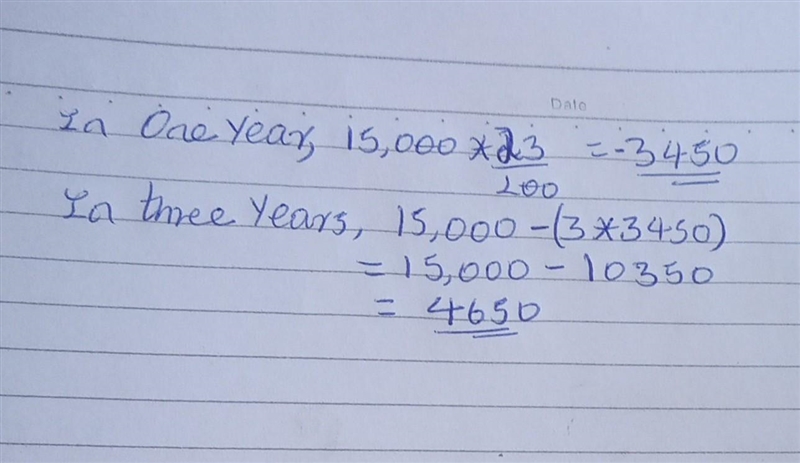 Date
In One Year, 15,000 * 23/100 = -3450
In three Years, 15,000 - (3*3450)
= 15,000 - 10350
= 4650